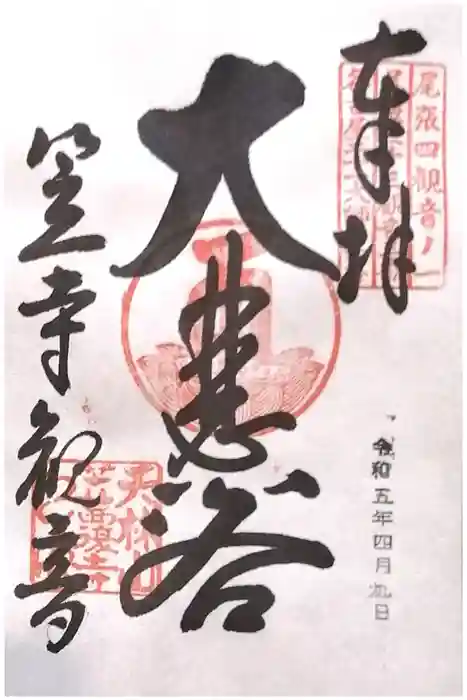 奉拝
尾張四観音ノ一
令和五年四月九日
大悲閣
笠寺観音
天林山